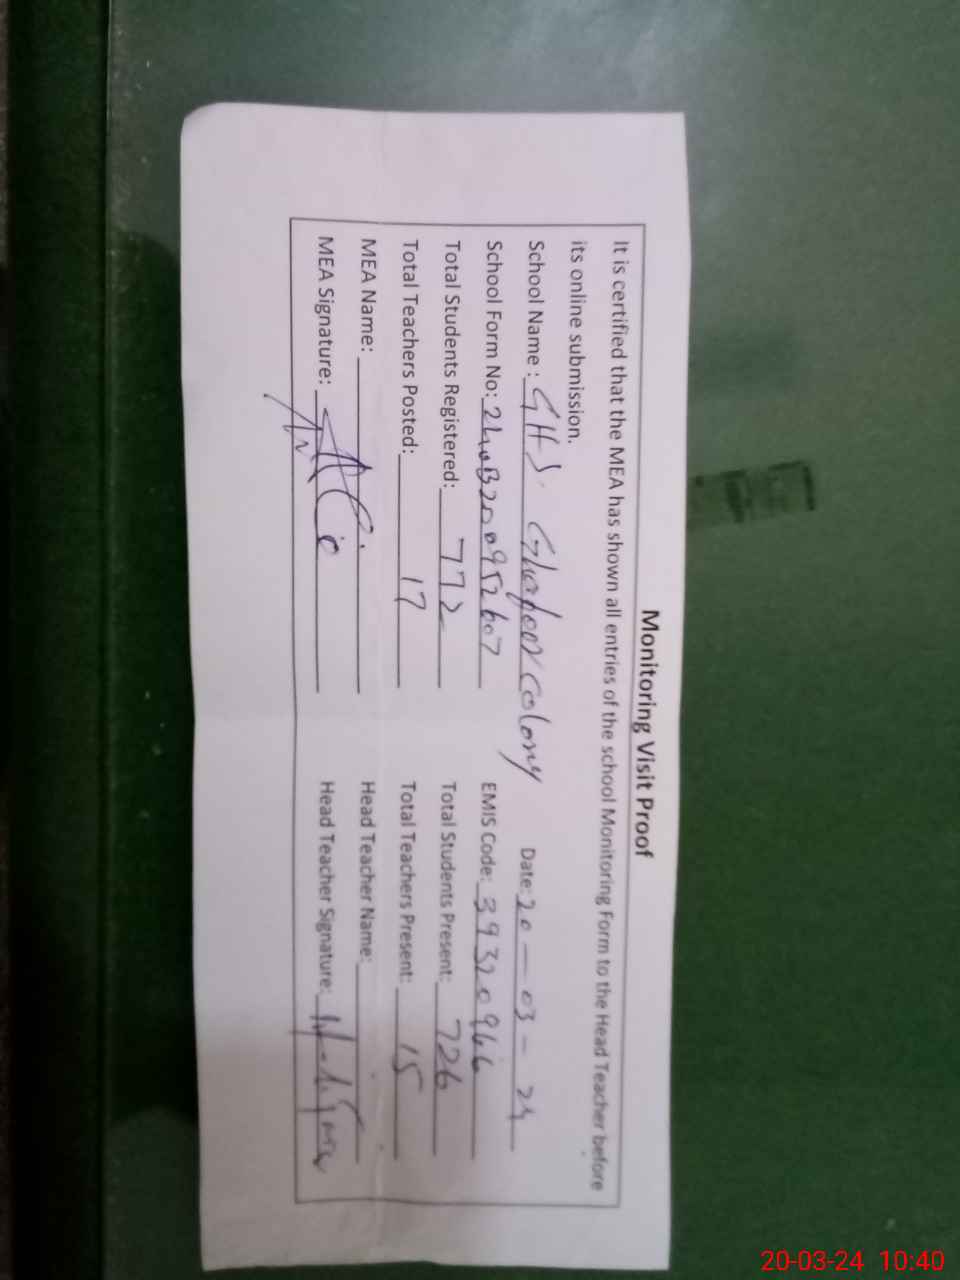 Monitoring Visit Proof
It is certified that the MEA has shown all entries of the school Monitoring Form to the Head Teacher before
its online submission.
School Name : GHS. Ghafoor Colony Date: 20 - 03 - 24
School Form No: EMIS Code: 39320966
Total Students Registered: 772 Total Students Present: 726
Total Teachers Posted: 17 Total Teachers Present: 15
MEA Name: Head Teacher Name:
MEA Signature: Head Teacher Signature:
20-03-24 10:40